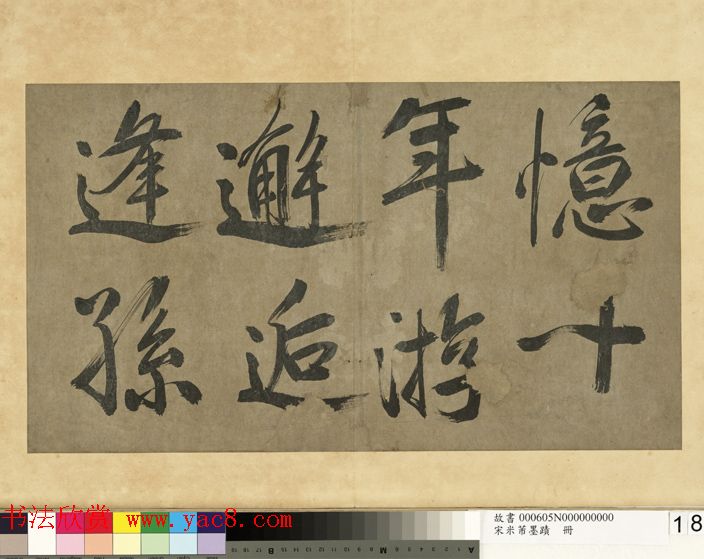 憶十
年游
邂逅
逢孫
书法欣赏 www.yac8.com
故書000605N000000000
宋米芾墨蹟 冊
18
B
A